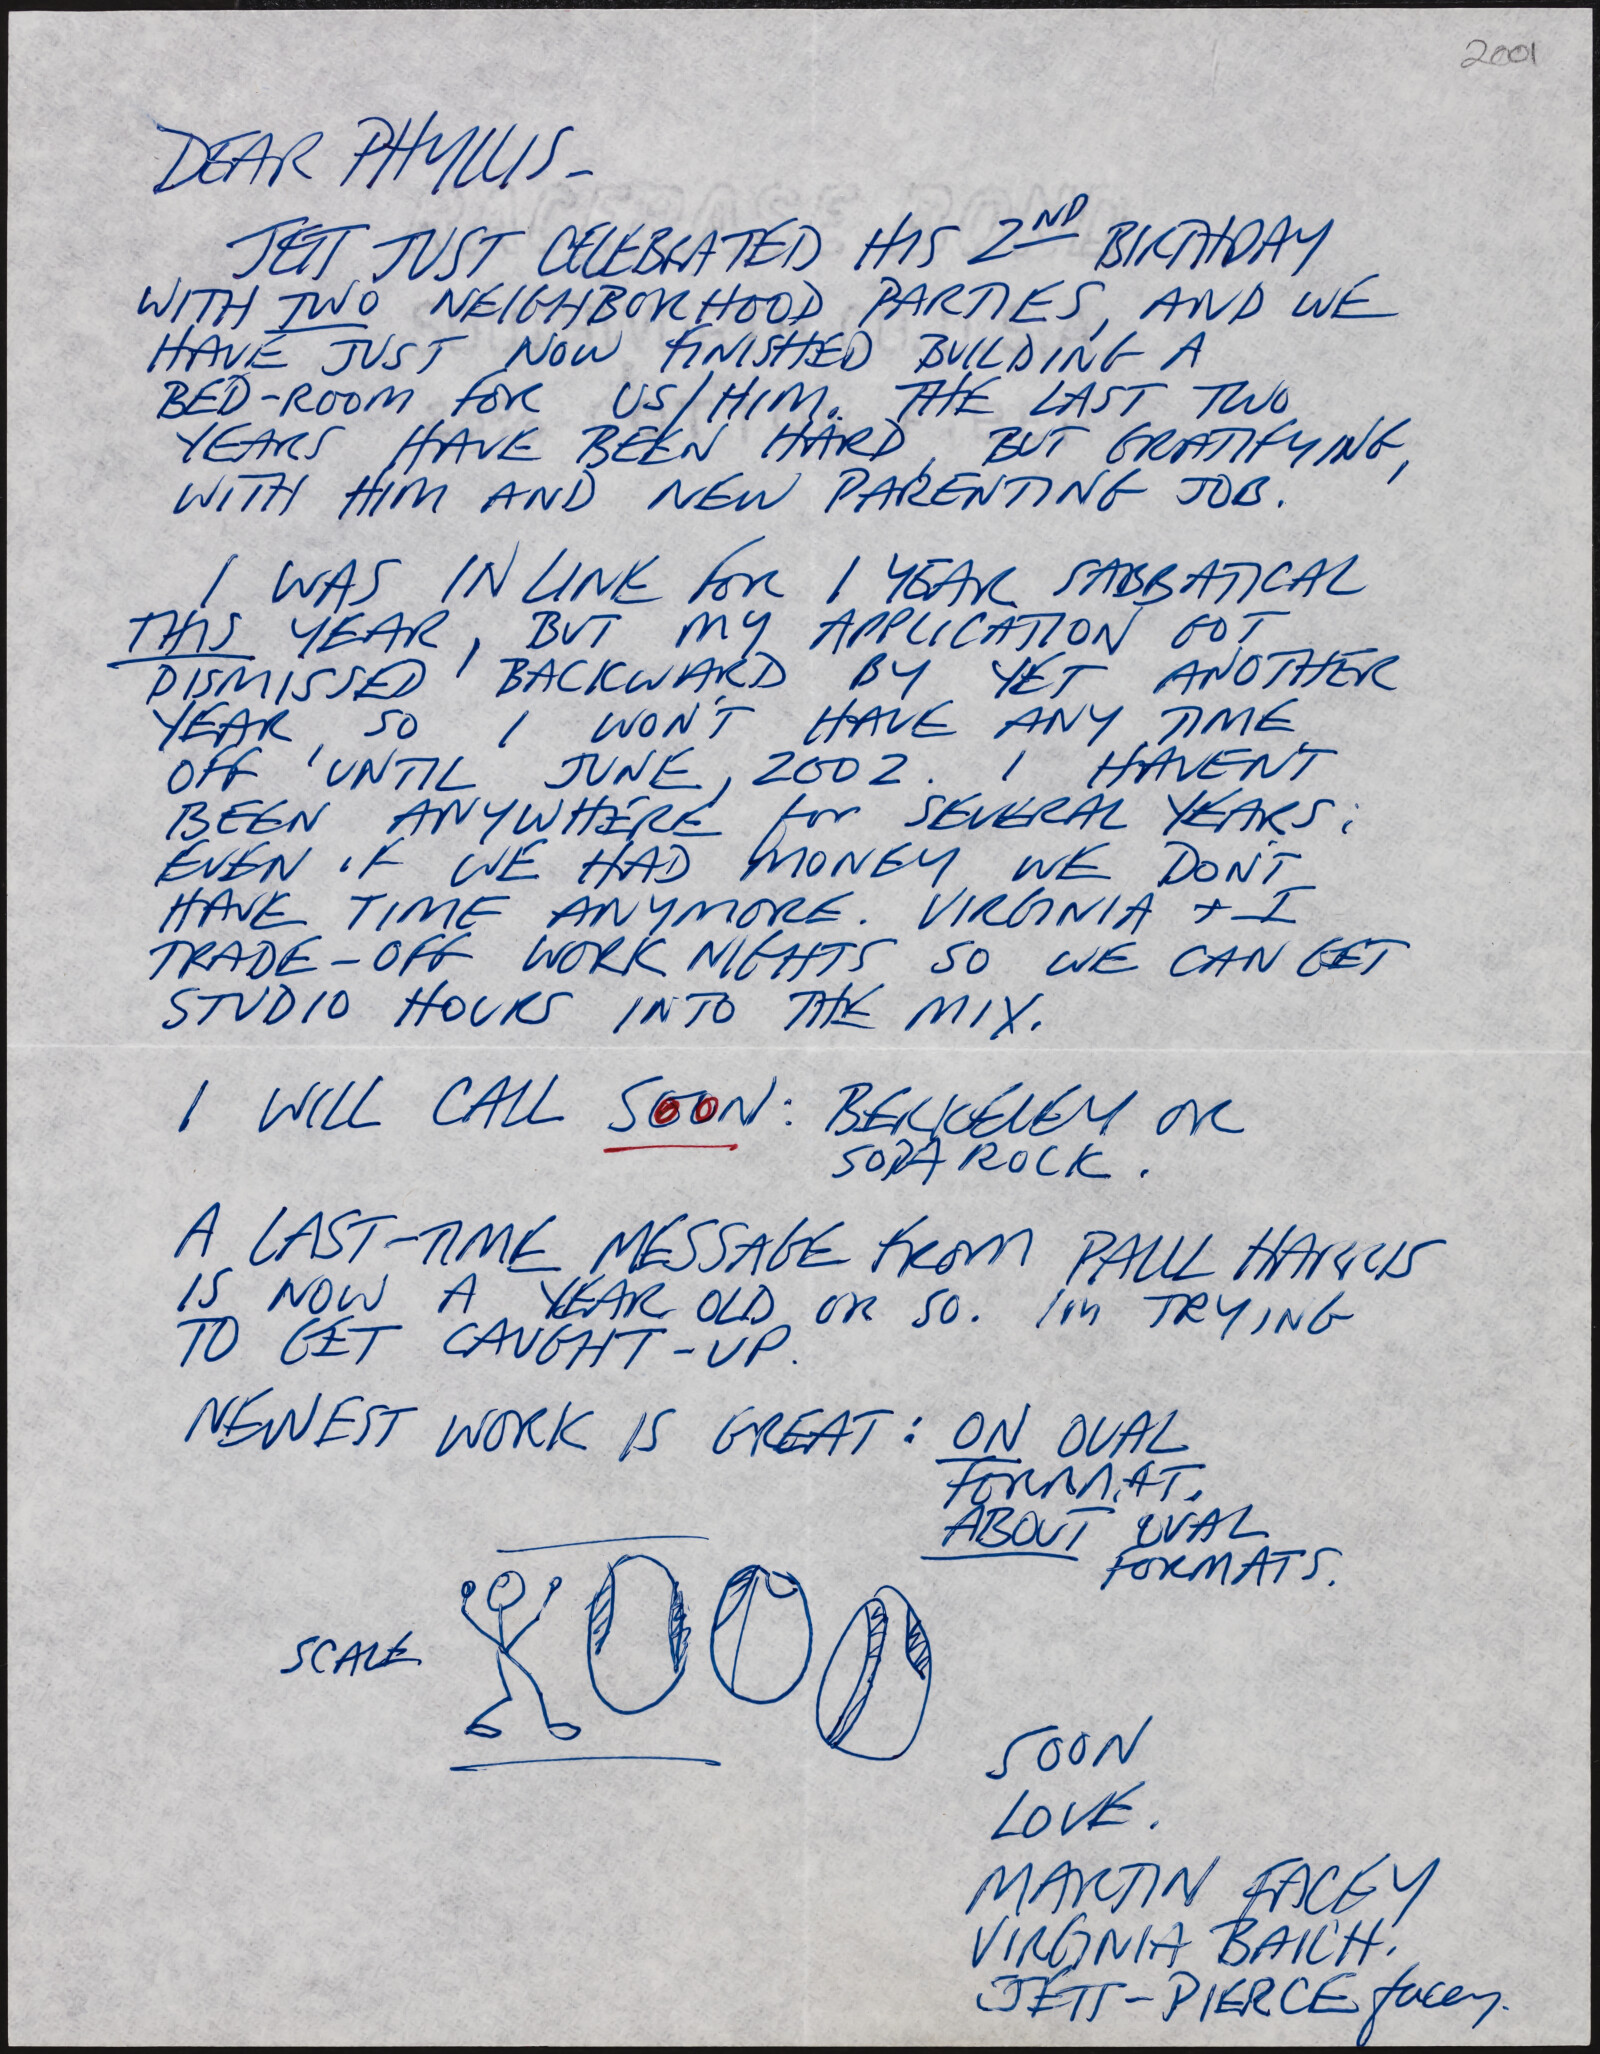 2001
DEAR PHYLLIS-
JETT JUST CELEBRATED HIS 2ND BIRTHDAY
WITH TWO NEIGHBORHOOD PARTIES, AND WE
HAVE JUST NOW FINISHED BUILDING A
BED-ROOM FOR US/HIM. THE LAST TWO
YEARS HAVE BEEN HARD, BUT GRATIFYING,
WITH HIM AND NEW PARENTING JOB.
I WAS IN LINE FOR 1 YEAR SABBATICAL
THIS YEAR, BUT MY APPLICATION GOT
DISMISSED BACKWARD BY YET ANOTHER
YEAR, SO I WON'T HAVE ANY TIME
OFF UNTIL JUNE, 2002. I HAVEN'T
BEEN ANYWHERE for SEVERAL YEARS:
EVEN IF WE HAD MONEY WE DON'T
HAVE TIME ANYMORE. VIRGINIA + I
TRADE-OFF WORK NIGHTS SO WE CAN GET
STUDIO HOURS INTO THE MIX.
I WILL CALL SOON: BERKELEY OR
SODA ROCK.
A LAST-TIME MESSAGE FROM PAUL HARRIS
IS NOW A YEAR OLD OR SO. I'M TRYING
TO GET CAUGHT-UP.
NEWEST WORK IS GREAT: ON OVAL
FORMAT.
ABOUT OVAL
FORMATS.
SCALE
SOON
LOVE.
MARTIN FACEY
VIRGINIA BAICH.
JETT-PIERCE facey.